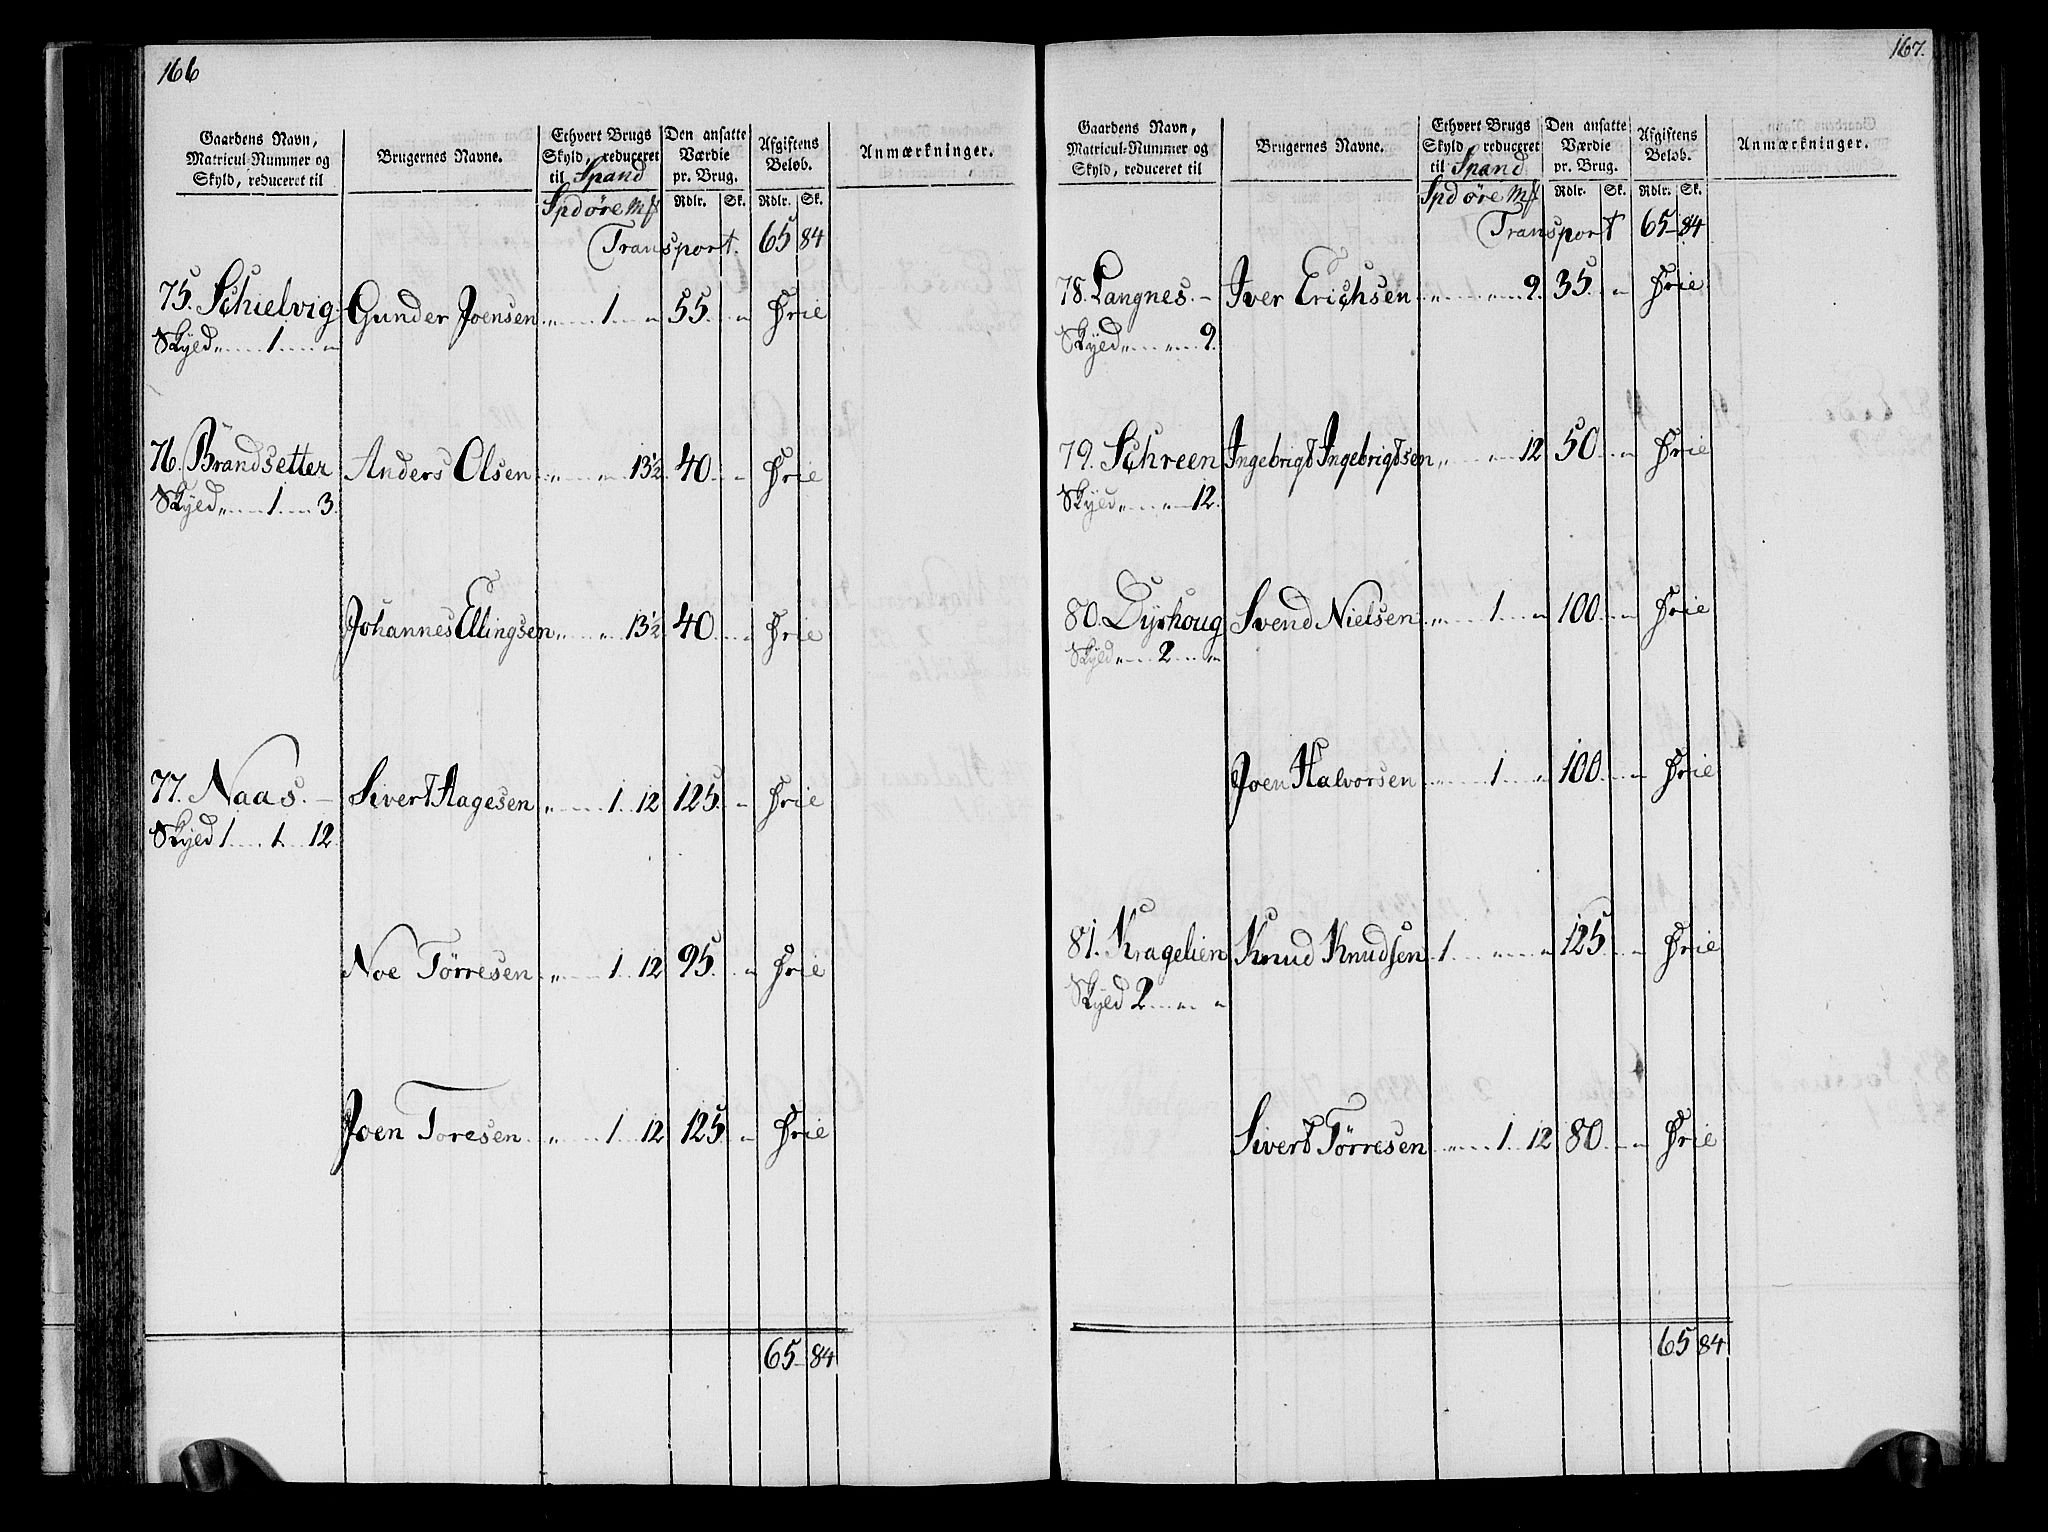 166
Gaardens Navn, Matricul-Nummer og Skyld, reduceret til | Brugernes Navne. | Ethvert Brugs Skyld, reduceret til Spand | Den ansatte Værdie pr. Brug. | Afgiftens Beløb. | Anmærkninger.
Spd øre Mk | Rdlr. | Sk. | Rdlr. | Sk.
Transport. 65 84
75. Schielvig Gunder Joensen " 1 " 55 " Frie
Skyld " 1 "
76. Brandsetter Anders Olsen " " 13½ 40 " Frie
Skyld " 1 3.
Johannes Ellingsen " " 13½ 40 " Frie
77. Naas. Sivert Hagesen " 1 12 125 " Frie
Skyld 1 1 12
Noe Tørresen " 1 12 95 " Frie
Joen Toresen " 1 12 125 " Frie
65 84
167.
Gaardens Navn, Matricul-Nummer og Skyld, reduceret til | Brugernes Navne. | Ethvert Brugs Skyld, reduceret til Spand | Den ansatte Værdie pr. Brug. | Afgiftens Beløb. | Anmærkninger.
Spd øre Mk | Rdlr. | Sk. | Rdlr. | Sk.
Transport 65 84
78. Langnes. Iver Erichsen " " 9. 35 " Frie
Skyld " " 9.
79. Schreen Ingebrigt Ingebrigtsen " " 12 50 " Frie
Skyld " " 12.
80. Dyrhoug Svend Nielsen " 1 " 100 " Frie
Skyld " 2 "
Joen Halvorsen " 1 " 100 " Frie
81. Kragelien Knud Knudsen 1 " " 125 " Frie
Skyld 2 " "
Sivert Tørresen " 1 12 80 " Frie
65 84